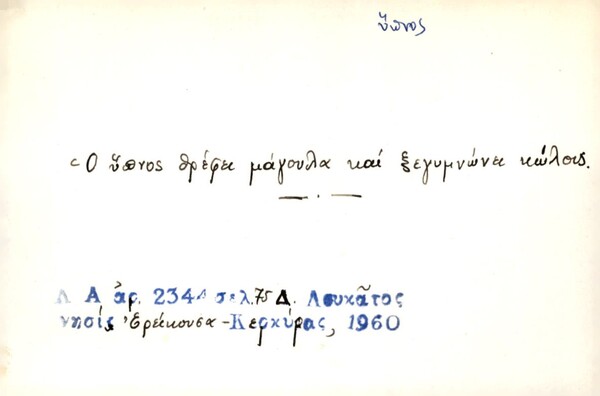 ὕπνος
Ὁ ὕπνος θρέφει μάγουλα καί ξεγυμνώνει κώλους.
Λ Α ἀρ. 2344 σελ. 75 Δ. Λουκᾶτος
νησίς Ἐρείκουσα - Κερκύρας, 1960